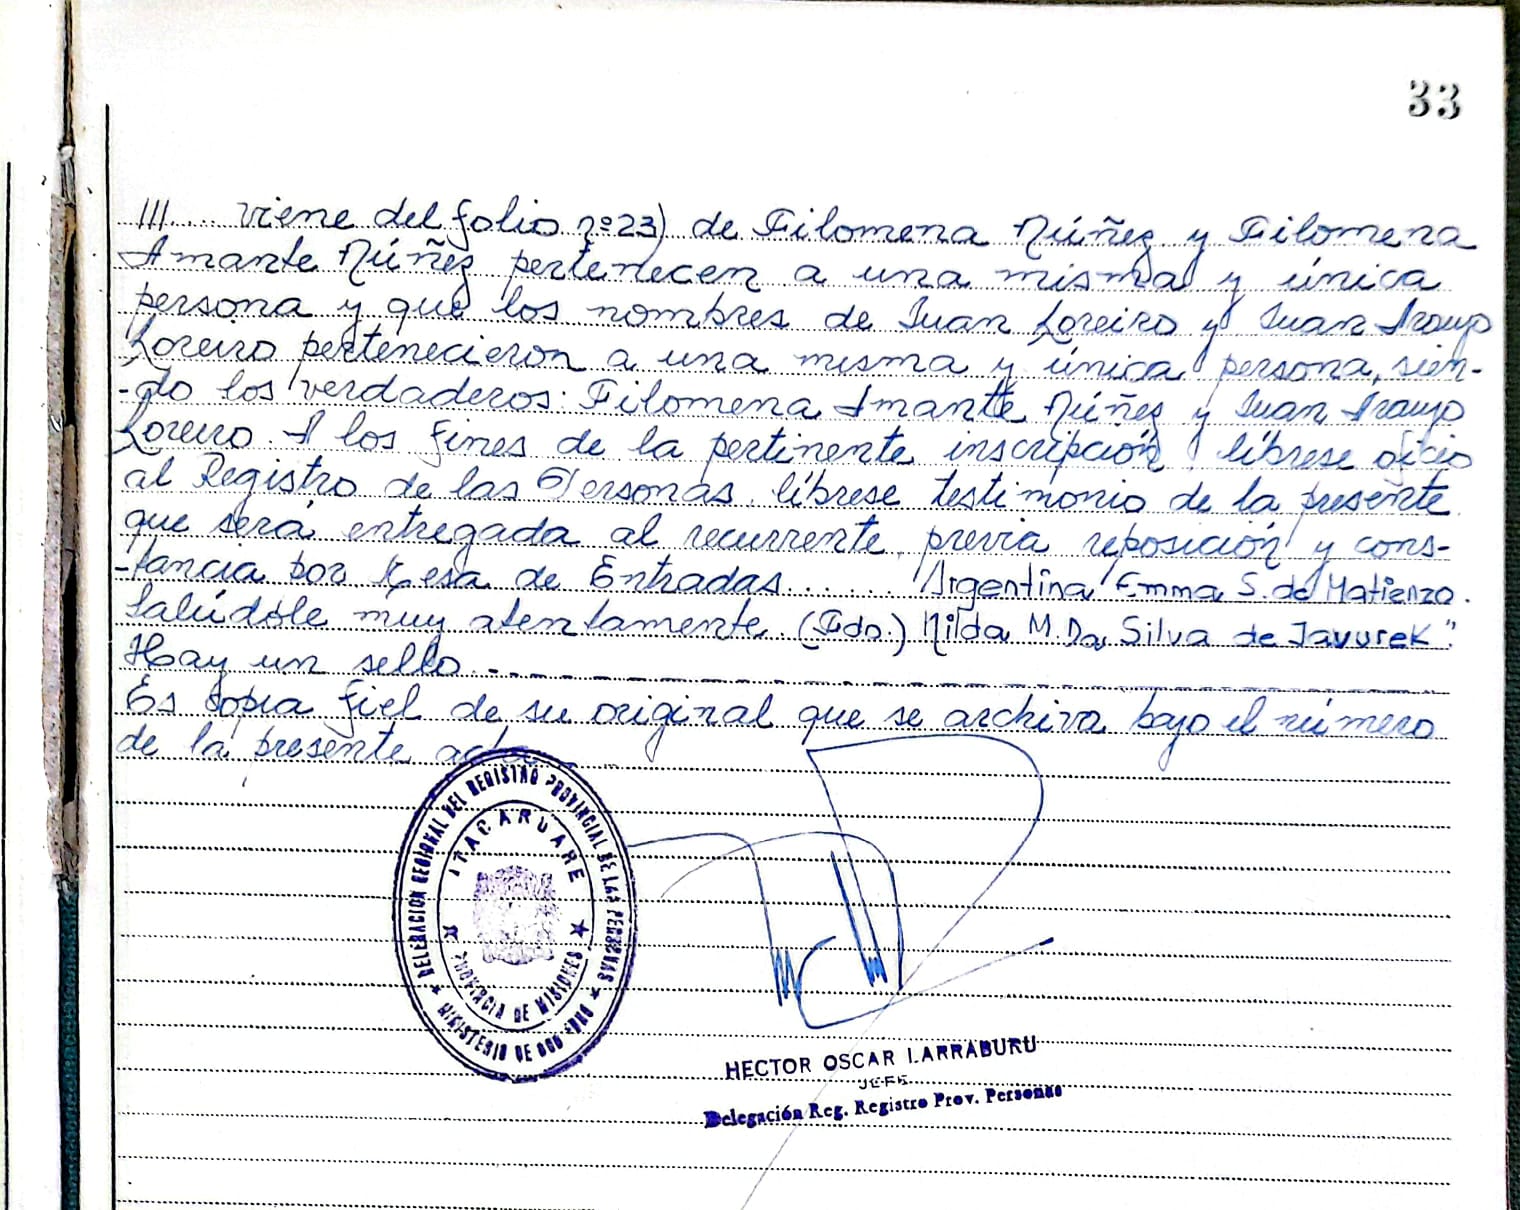 33
///.... viene del folio nº 23) de Filomena Núñez y Filomena
Amante Núñez pertenecen a una misma y única
persona y que los nombres de Juan Loreiro y Juan Araujo
Loreiro pertenecieron a una misma y única persona, sien-
-do los verdaderos: Filomena Amante Núñez y Juan Araujo
Loreiro. A los fines de la pertinente inscripción, líbrese oficio
al Registro de las Personas, líbrese testimonio de la presente
que será entregada al recurrente, previa reposición y cons-
-tancia por Mesa de Entradas....... Argentina Emma S. de Matienzo.
Salúdole muy atentamente. (Fdo.) Nilda M. Da Silva de Javurek".
Hay un sello.-
Es copia fiel de su original que se archiva bajo el número
de la presente acta
DELEGACION REGIONAL DEL REGISTRO PROVINCIAL DE LAS PERSONAS
ITACARUARE
PROVINCIA DE MISIONES
MINISTERIO DE GOBIERNO
HECTOR OSCAR LARRABURU
JEFE
Delegación Reg. Registro Prov. Personas